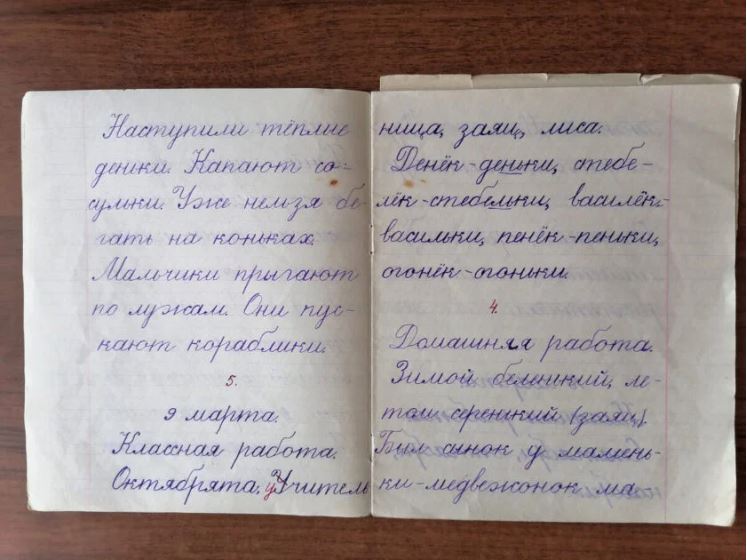 Наступили тёплые
деньки. Капают со-
сульки. Уже нельзя бе-
гать на коньках.
Мальчики прыгают
по лужам. Они пус-
кают кораблики.
5.
9 марта.
Классная работа.
Октябрята. уУчитель
ница, заяц, лиса.
Денёк-деньки, стебе-
лёк-стебельки, василёк-
васильки, пенёк-пеньки,
огонёк-огоньки.
4.
Домашняя работа.
Зимой беленький, ле-
том серенький (заяц).
Был сынок у мамень-
ки-медвежонок ма-